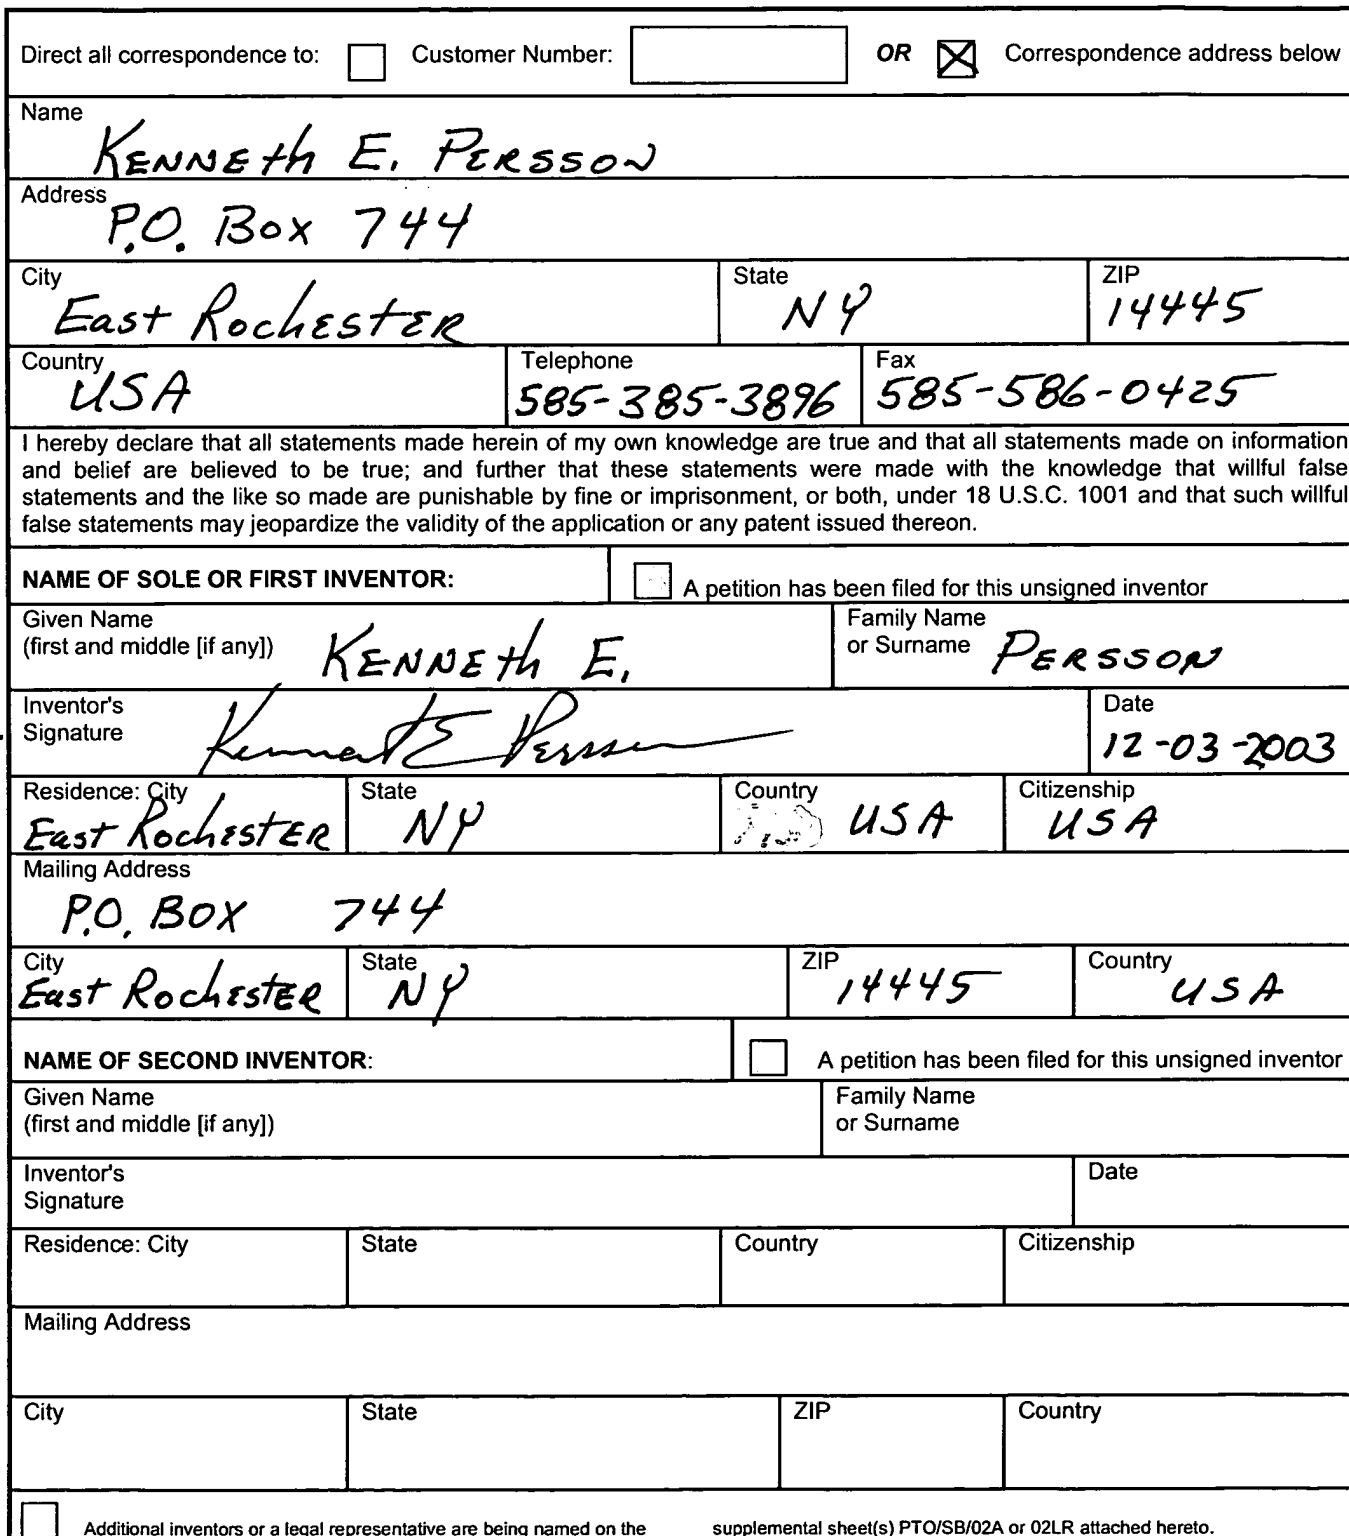 Direct all correspondence to: Customer Number: OR Correspondence address below
Name
KENNETH E. PERSSON
Address
P.O. Box 744
City State ZIP
East Rochester NY 14445
Country Telephone Fax
USA 585-385-3896 585-586-0425
I hereby declare that all statements made herein of my own knowledge are true and that all statements made on information
and belief are believed to be true; and further that these statements were made with the knowledge that willful false
statements and the like so made are punishable by fine or imprisonment, or both, under 18 U.S.C. 1001 and that such willful
false statements may jeopardize the validity of the application or any patent issued thereon.
NAME OF SOLE OR FIRST INVENTOR: A petition has been filed for this unsigned inventor
Given Name Family Name
(first and middle [if any]) KENNETH E. or Surname PERSSON
Inventor's Date
Signature Kenneth E Persson 12-03-2003
Residence: City State Country Citizenship
East Rochester NY USA USA
Mailing Address
P.O. BOX 744
City State ZIP Country
East Rochester NY 14445 USA
NAME OF SECOND INVENTOR: A petition has been filed for this unsigned inventor
Given Name Family Name
(first and middle [if any]) or Surname
Inventor's Date
Signature
Residence: City State Country Citizenship
Mailing Address
City State ZIP Country
Additional inventors or a legal representative are being named on the supplemental sheet(s) PTO/SB/02A or 02LR attached hereto.